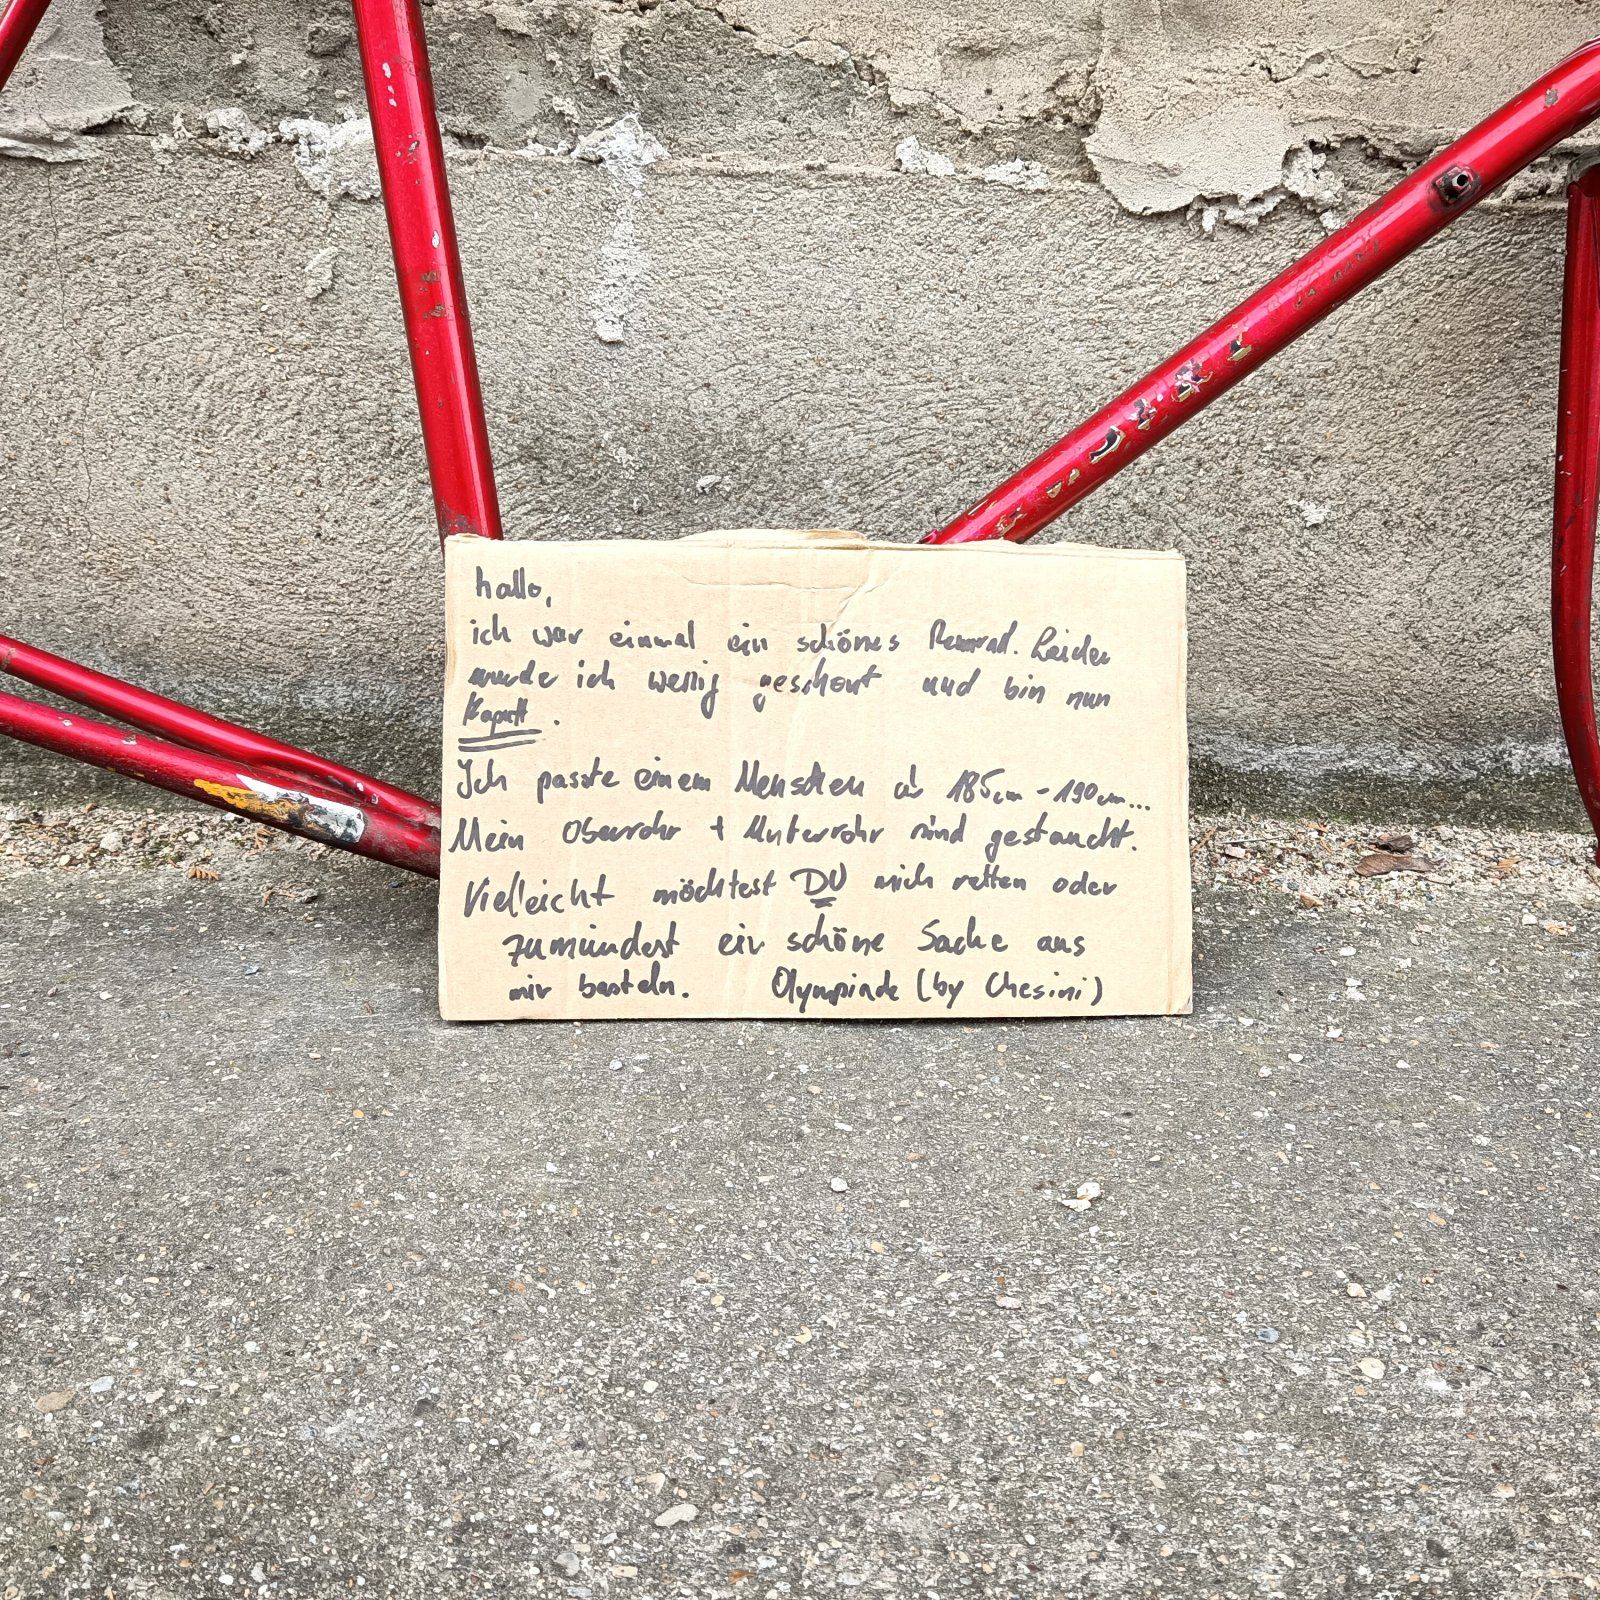 hallo,
ich war einmal ein schönes Rennrad. Leider
wurde ich wenig geschont und bin nun
kaputt.
Ich passte einem Menschen ab 185cm - 190cm...
Mein Oberrohr + Unterrohr sind gestaucht.
Vielleicht möchtest DU mich retten oder
zumindest ein schöne Sache aus
mir basteln. Olympiade (by Chesini)